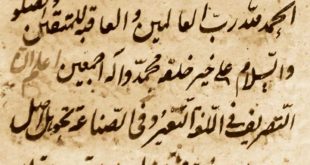 الحمد لله رب العالمين والعاقبة للمتقين
والسلام على خير خلقه محمد وآله اجمعين اعلم ان
التصريف فى اللغة التغيير وفى الصناعة تحويل الاصل